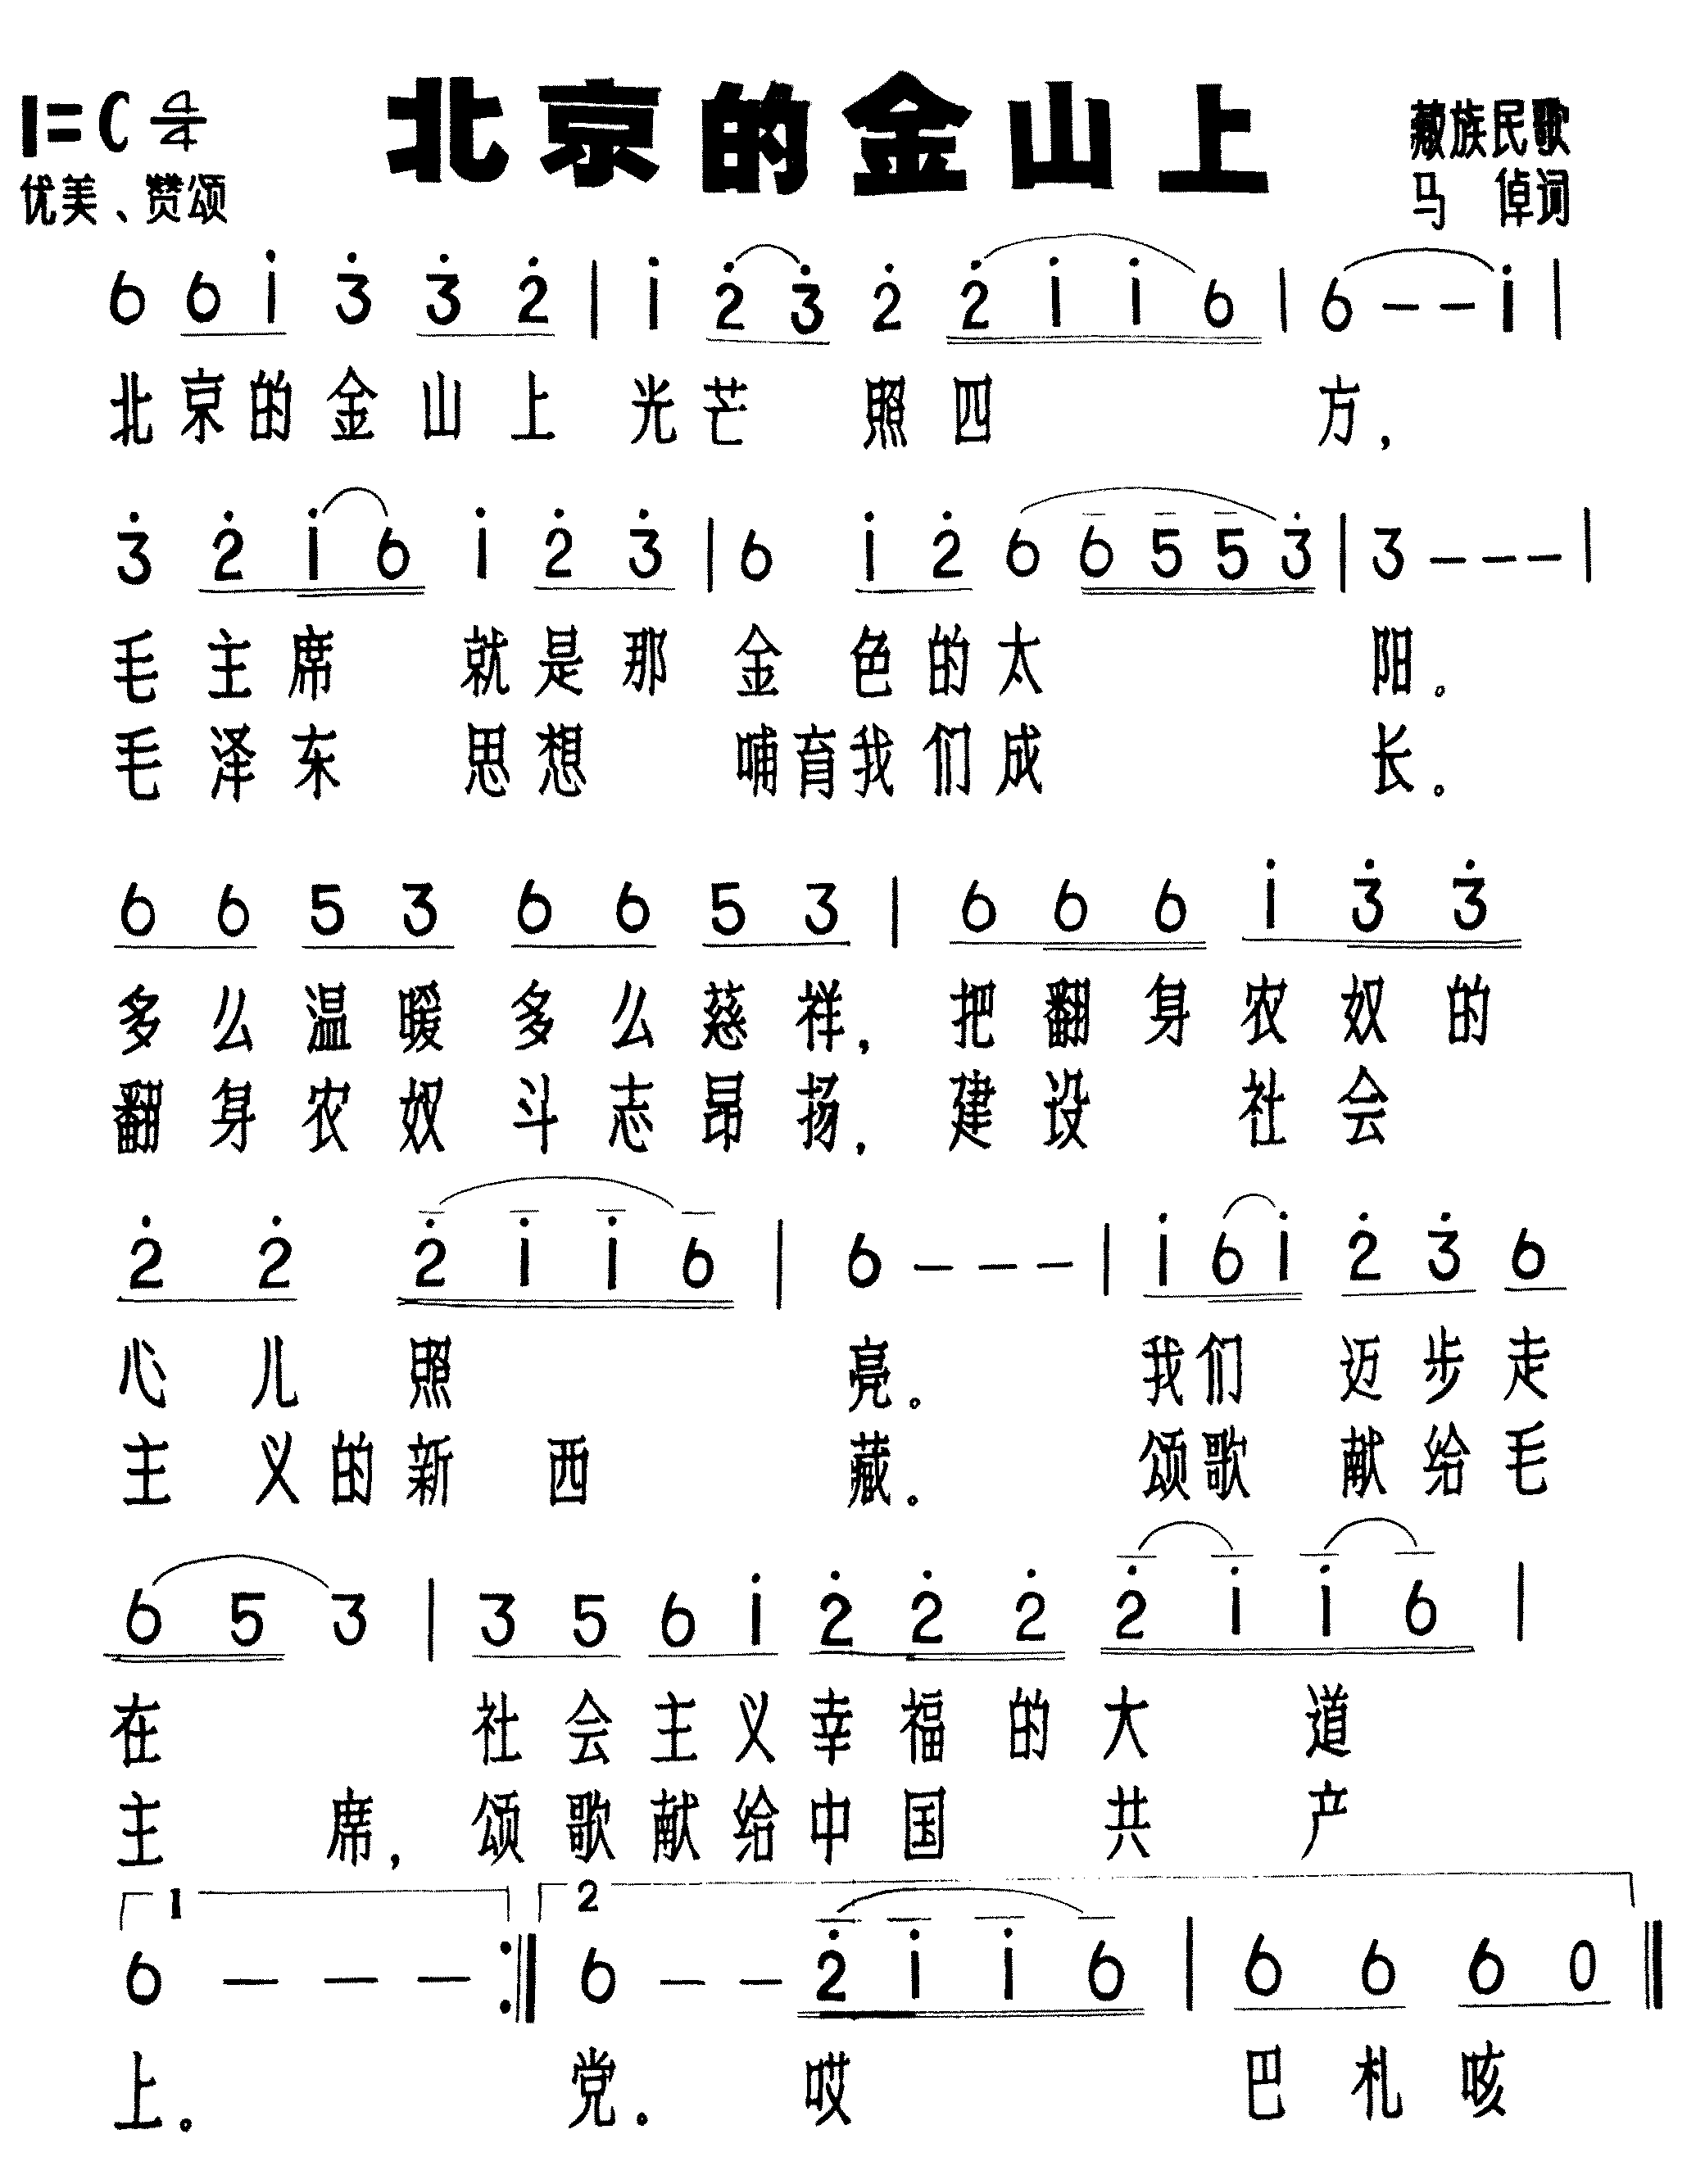 北京的金山上
1=C 4/4
藏族民歌
优美、赞颂
马倬词
6 6 i̇ 3̇ 3̇ 2̇ | i̇ 2̇ 3̇ 2̇ 2̇ i̇ i̇ 6 | 6 — — i̇ |
北京的金山上 光芒 照四 方，
3̇ 2̇ i̇ 6 i̇ 2̇ 3̇ | 6 i̇ 2̇ 6 6 5 5 3̇ | 3 — — — |
毛主席 就是那 金色的太 阳。
毛泽东 思想 哺育我们成 长。
6 6 5 3 6 6 5 3 | 6 6 6 i̇ 3̇ 3̇
多么温暖多么慈祥，把翻身农奴的
翻身农奴斗志昂扬，建设 社会
2̇ 2̇ 2̇ i̇ i̇ 6 | 6 — — — | i̇ 6 i̇ 2̇ 3̇ 6
心儿 照 亮。 我们 迈步走
主义的新西 藏。 颂歌 献给毛
6 5 3 | 3 5 6 i̇ 2̇ 2̇ 2̇ 2̇ i̇ i̇ 6 |
在 社会主义幸福的大 道
主 席，颂歌献给中国 共 产
1 2
6 — — — :‖ 6 — — 2̇ i̇ i̇ 6 | 6 6 6 0 ‖
上。 党。 哎 巴札咳